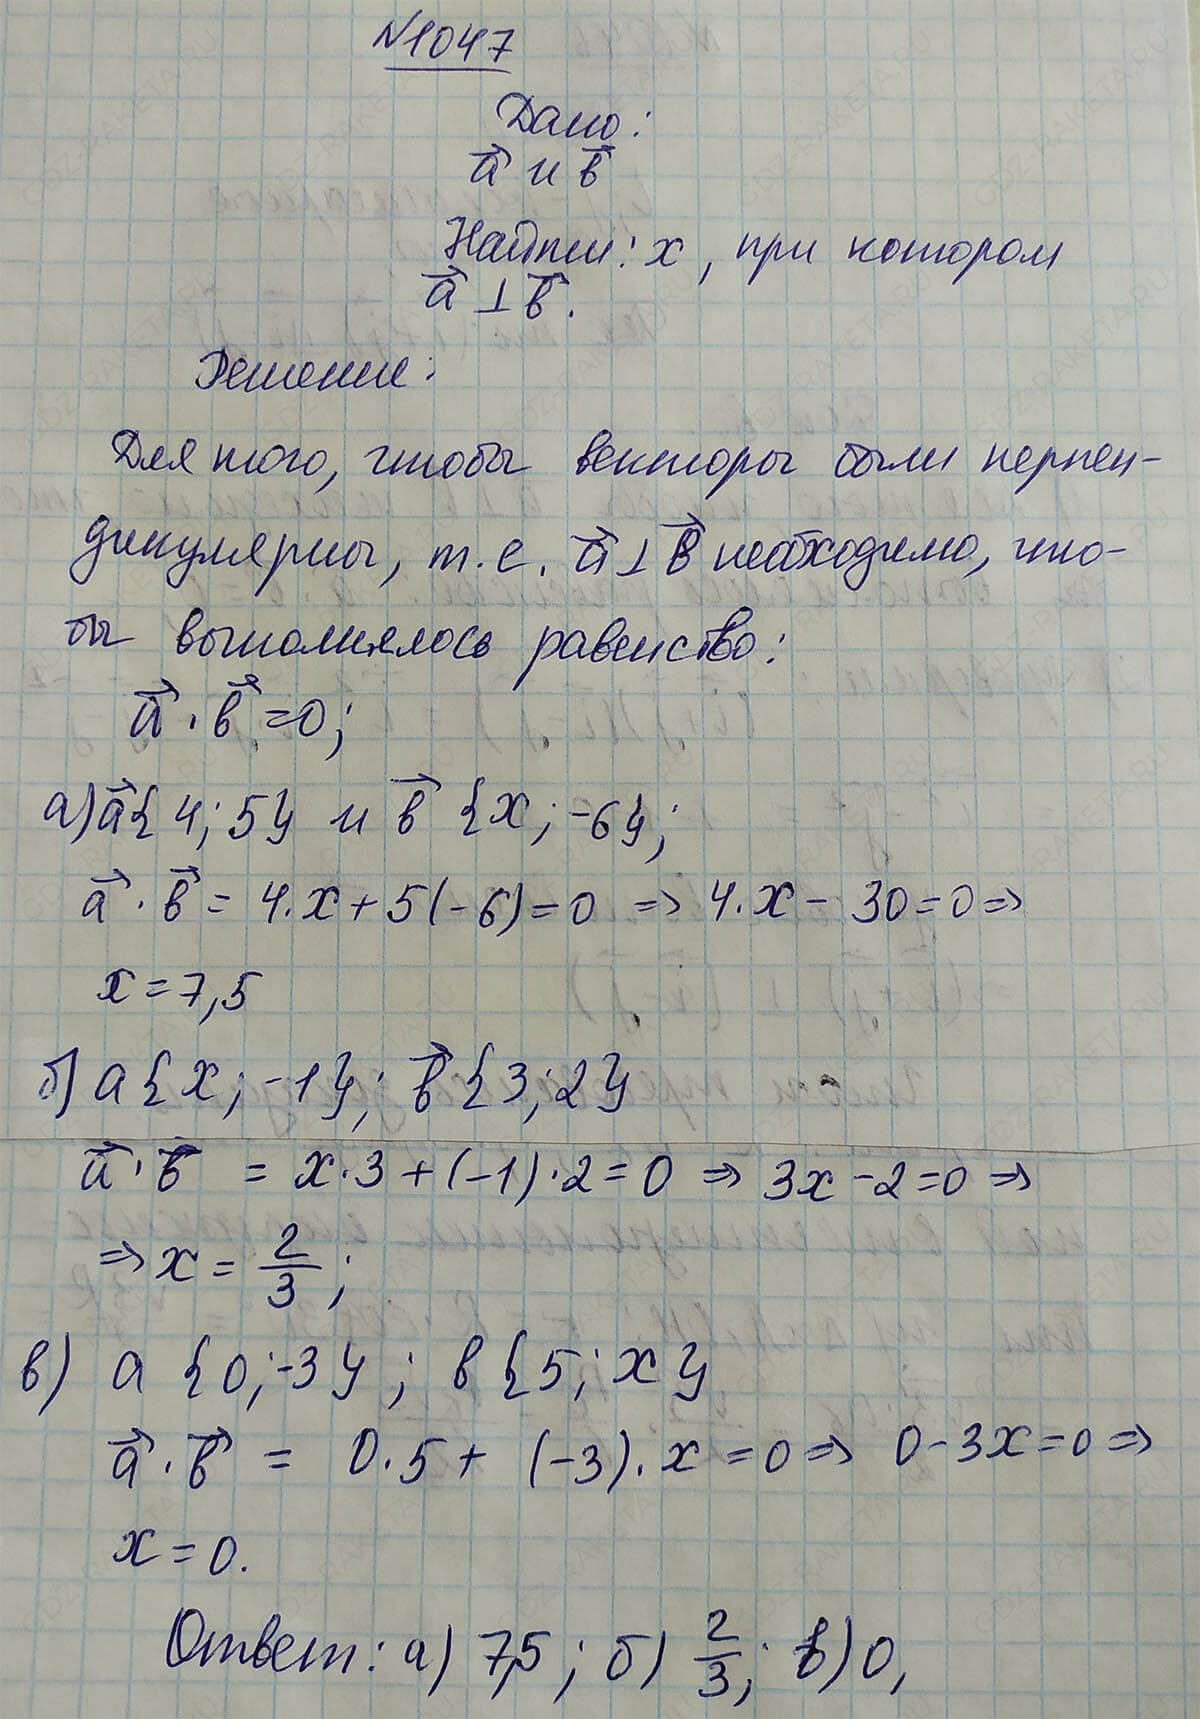 №1047
Дано:
a⃗ и b⃗
Найти: x, при котором
a⃗ ⊥ b⃗.
Решение:
Для того, чтобы векторы были перпен-
дикулярны, т.е. a⃗ ⊥ b⃗ необходимо, что-
бы выполнялось равенство:
a⃗ · b⃗ = 0;
а) a⃗ {4; 5} и b⃗ {x; -6};
a⃗ · b⃗ = 4·x + 5(-6) = 0 => 4·x - 30 = 0 =>
x = 7,5
б) a {x; -1}; b⃗ {3; 2}
a⃗ · b⃗ = x·3 + (-1)·2 = 0 => 3x - 2 = 0 =>
=> x = 2/3;
в) a {0; -3}; b {5; x}
a⃗ · b⃗ = 0·5 + (-3)·x = 0 => 0 - 3x = 0 =>
x = 0.
Ответ: а) 7,5; б) 2/3; в) 0,